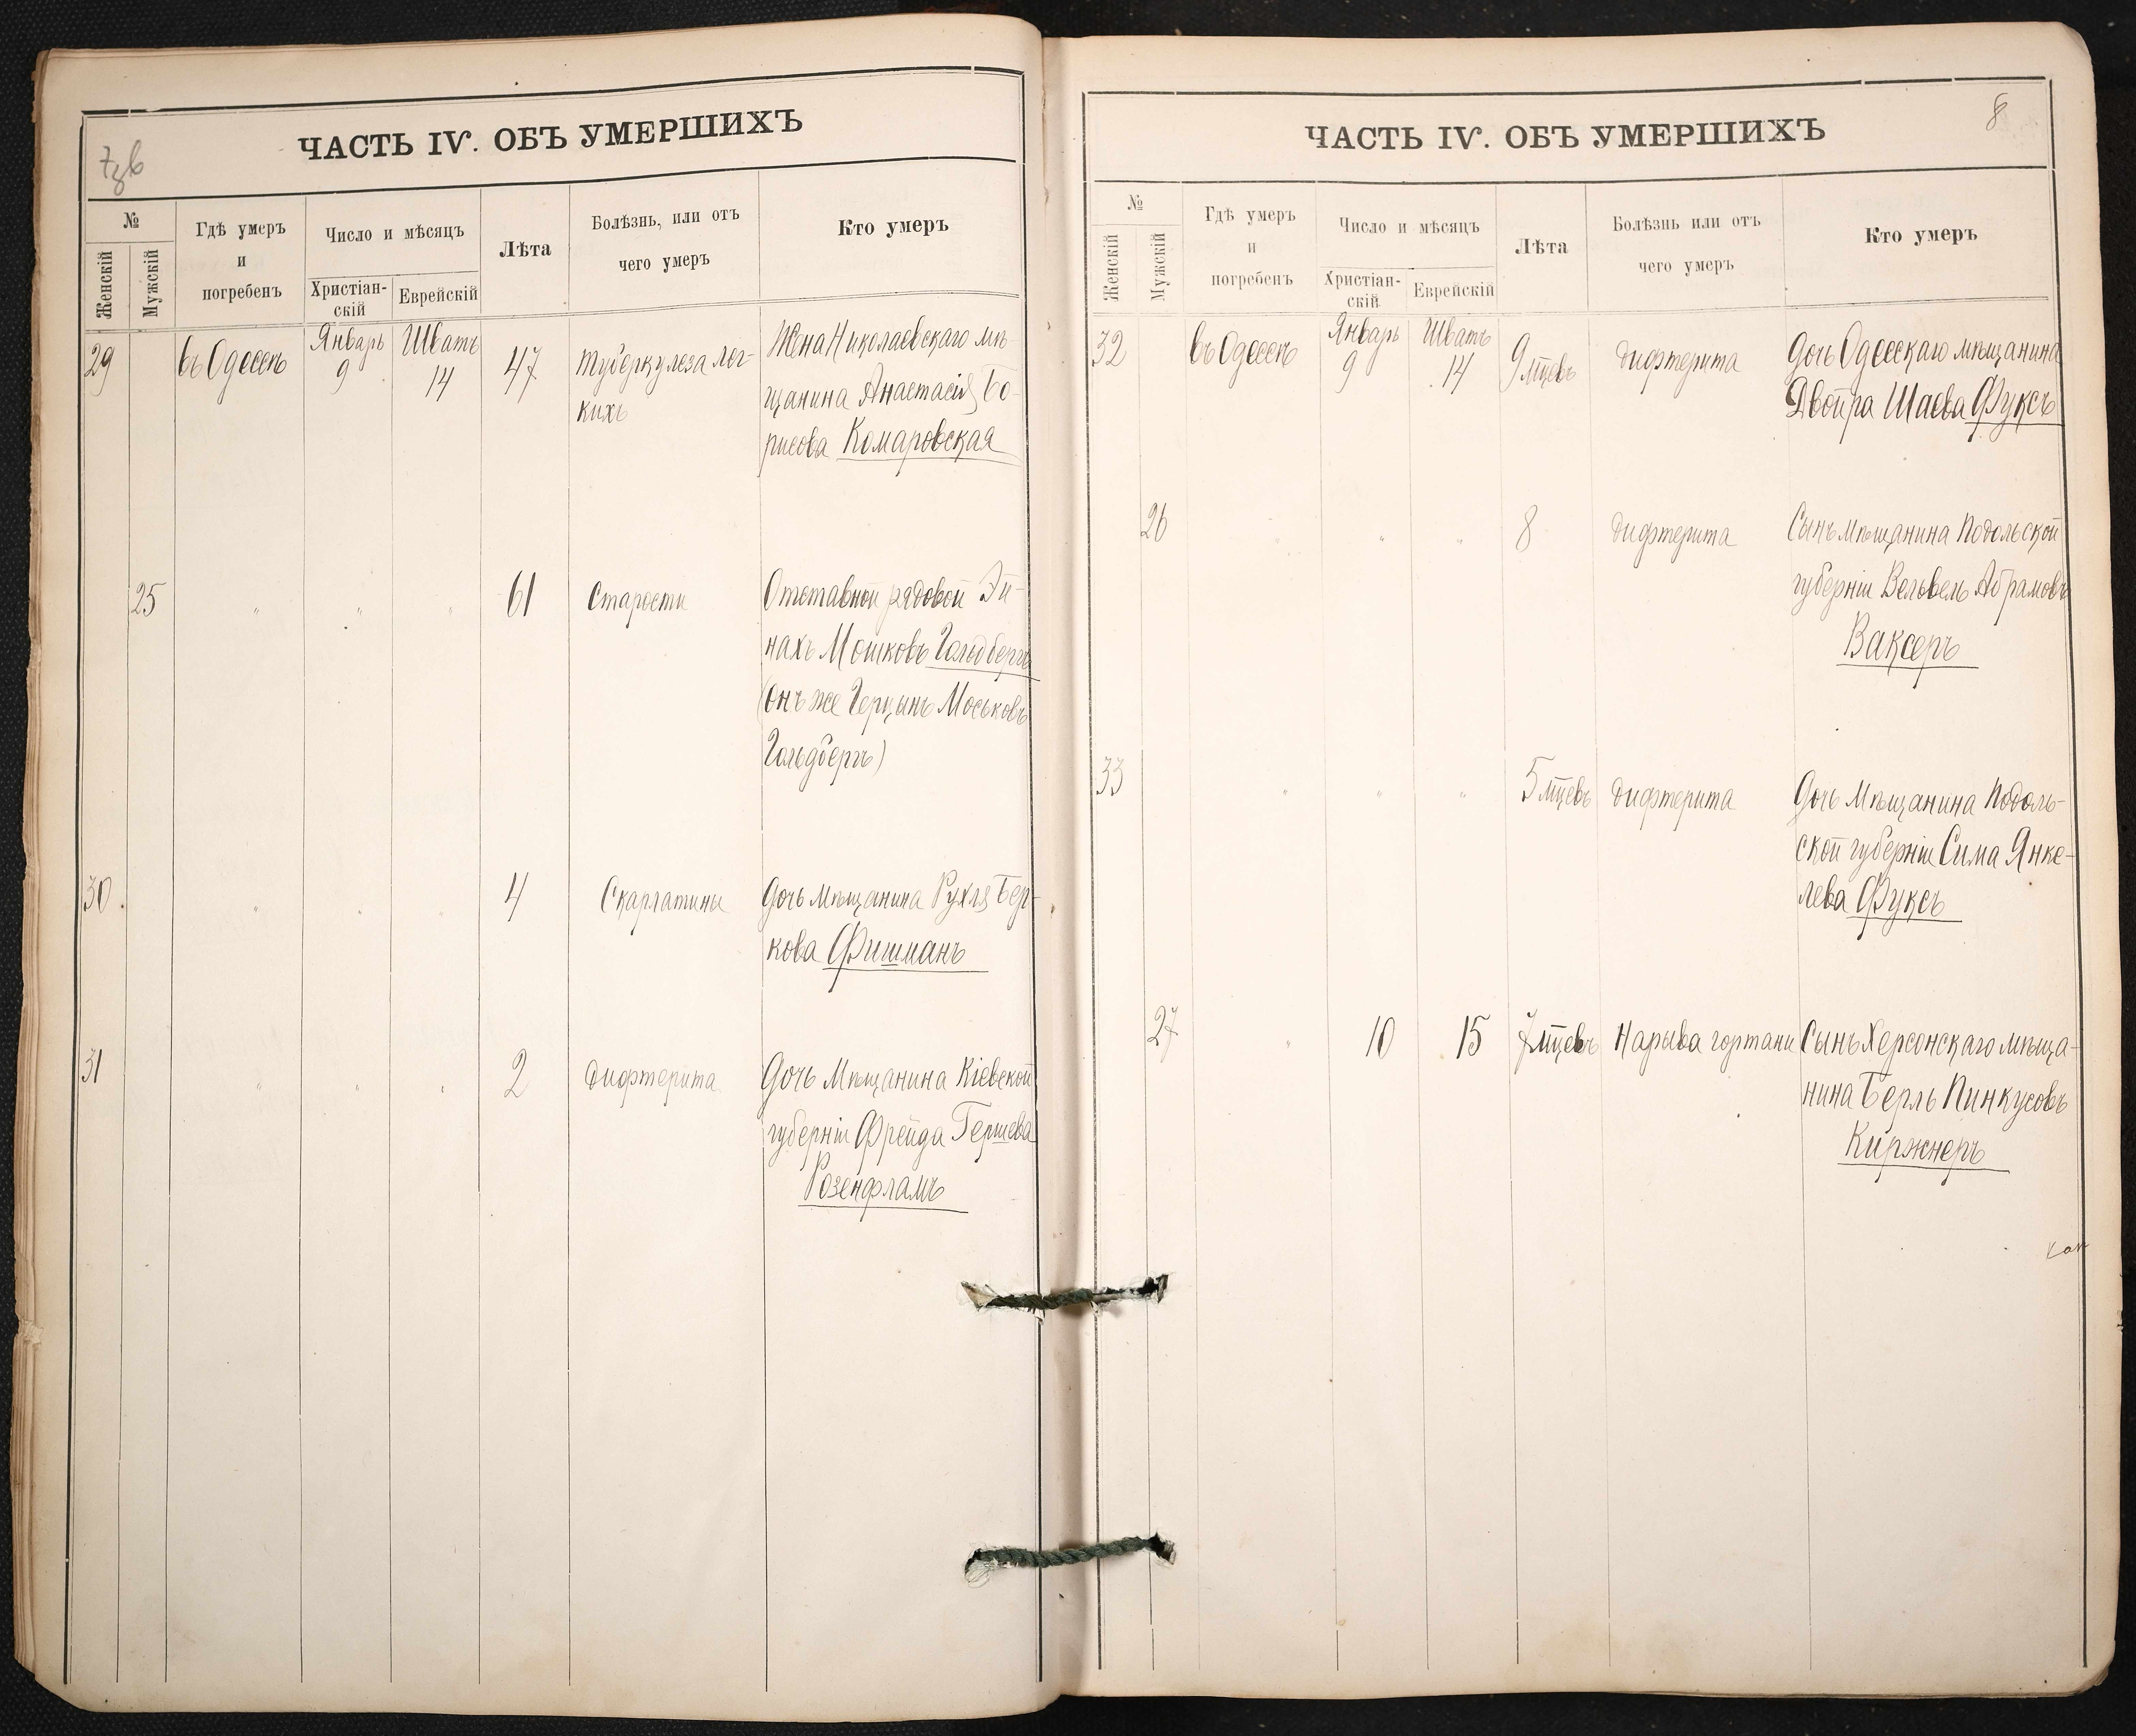 7зб
ЧАСТЬ IV. ОБЪ УМЕРШИХЪ
№
Женскій
Мужскій
Гдѣ умеръ
и
погребенъ
Число и мѣсяцъ
Христіан-
скій
Еврейскій
Лѣта
Болѣзнь, или отъ
чего умеръ
Кто умеръ
29
въ Одессѣ
Январь
9
Шватъ
14
47
туберкулеза лег-
кихъ
Жена Николаевскаго мѣ-
щанина Анастасія Бо-
рисова Комаровская
25
" " "
61
Старости
Отставной рядовой Эй-
нахъ Мошковъ Гольдбергъ
(онъ же Герцынъ Моськовъ
Гольдбергъ)
30.
" " "
4
Скарлатины
Дочь мѣщанина Рухля Бер-
кова Фишманъ
31
" " "
2
дифтерита
Дочь Мѣщанина Кіевской
губерніи Фрейда Гершева
Розенфламъ
8
ЧАСТЬ IV. ОБЪ УМЕРШИХЪ
№
Женскій
Мужскій
Гдѣ умеръ
и
погребенъ
Число и мѣсяцъ
Христіан-
скій
Еврейскій
Лѣта
Болѣзнь или отъ
чего умеръ
Кто умеръ
32
въ Одессѣ
Январь
9
Шватъ
14
9 мцевъ
дифтерита
Дочь Одесскаго мѣщанина
Двойра Шаева Фуксъ
26
" " "
8
дифтерита
Сынъ мѣщанина Подольской
губерніи Вельвель Абрамовъ
Ваксеръ
33
" " "
5 мцевъ
дифтерита
Дочь Мѣщанина Подоль-
ской губерніи Сима Янке-
лева Фуксъ
27
"
10
15
7 мцевъ
Нарыва гортани
Сынъ Херсонскаго мѣща-
нина Берль Пинкусовъ
Киржнеръ